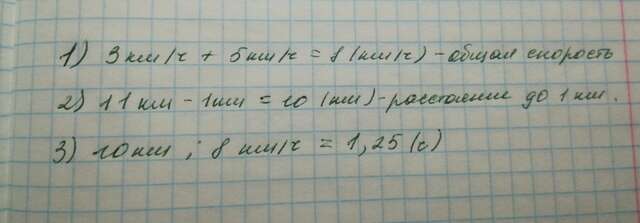 1) 3 км/ч + 5 км/ч = 8 (км/ч) - общая скорость
2) 11 км - 1 км = 10 (км) - расстояние до 1 км.
3) 10 км ; 8 км/ч = 1,25 (ч)